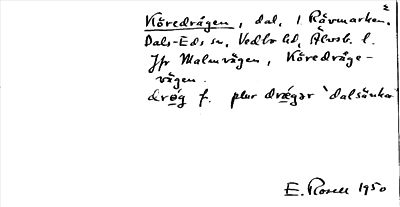 Köredrågen, dal, i Rävmarken,
Dals-Eds sn, Vedbo hd, Älvsb. l.
Jfr Malmvägen, Köredråge-
vägen.
drǫ́g f. plur drǽgər 'dalsänka'
E. Rosell 1950